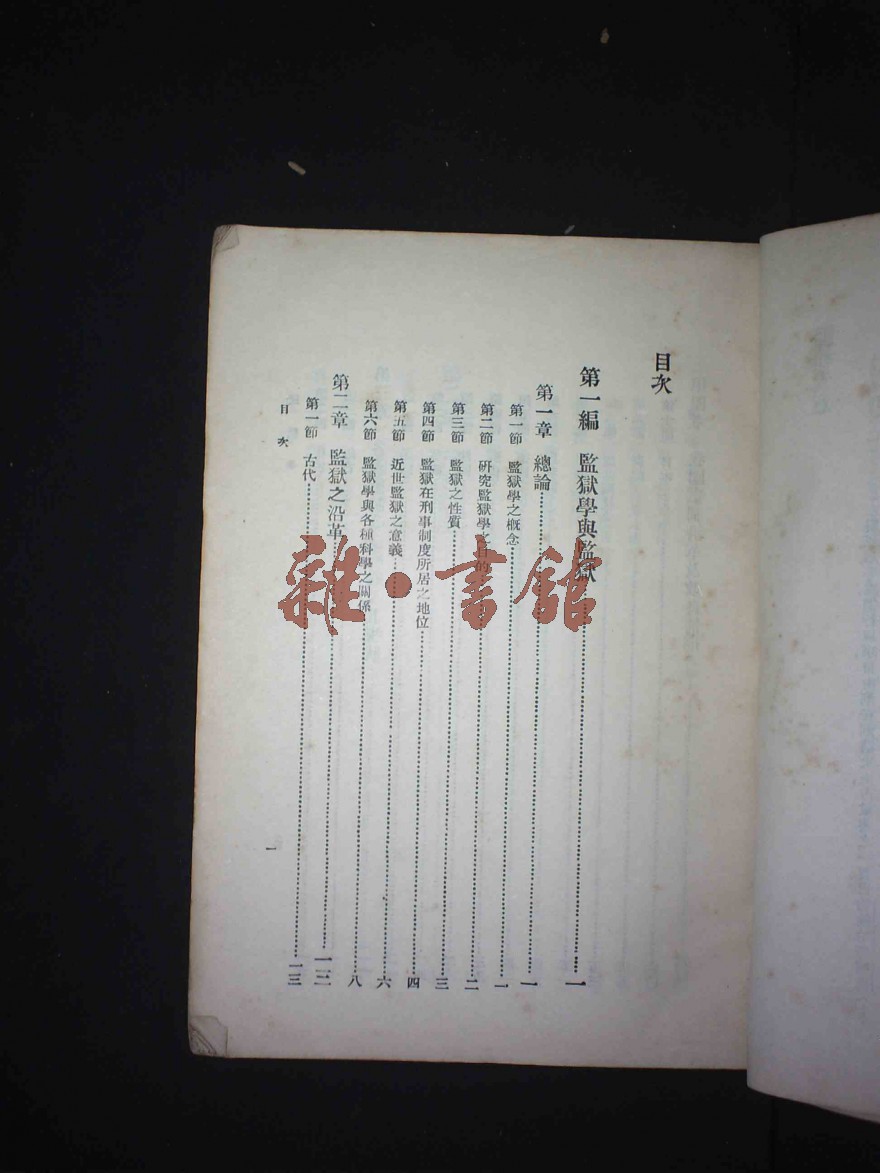 目次
第一編 監獄學與監獄……一
第一章 總論……一
第一節 監獄學之概念……一
第二節 研究監獄學之目的……二
第三節 監獄之性質……三
第四節 監獄在刑事制度所居之地位……四
第五節 近世監獄之意義……六
第六節 監獄學與各種科學之關係……八
第二章 監獄之沿革……一三
第一節 古代……一三
目次
一
雜·書館